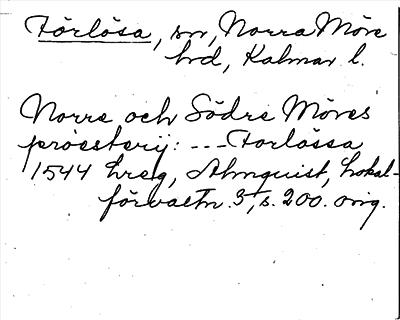 Förlösa, sn, Norra Möre
hd, Kalmar l.
Norre och Södre Möres
prosterij: --- Forlössa
1544 hreg, Almquist, Lokal-
förvaltn. 3, s. 200. orig.